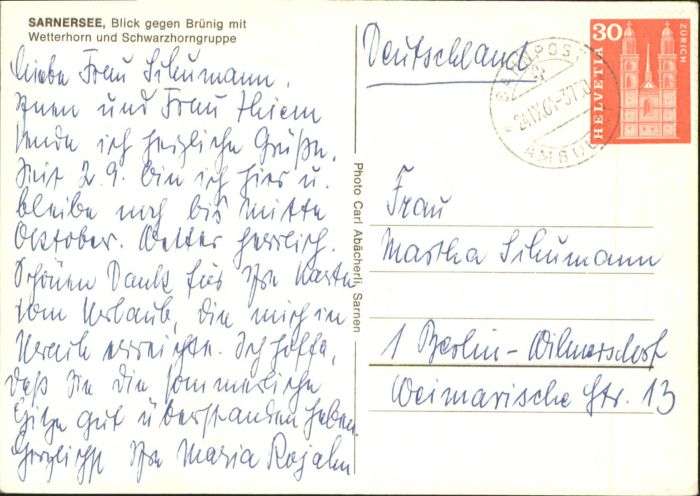 SARNERSEE, Blick gegen Brünig mit
Wetterhorn und Schwarzhorngruppe
Liebe Frau Schumann,
Ihnen und Frau Thiem
sende ich herzliche Grüße.
Seit 2.9. bin ich hier u.
bleibe noch bis Mitte
Oktober. Wetter herrlich.
Schönen Dank für Ihre Karte
vom Urlaub, die mich in
erreichte. Ich hoffe,
daß Sie die sommerliche
Hitze gut überstanden haben.
Herzlichst Ihre Maria Rojahn
Photo Carl Abächerli, Sarnen
Deutschland
AMBUL
30
HELVETIA
ZÜRICH
Frau
Martha Schumann
1 Berlin-Wilmersdorf
Weimarische Str. 13